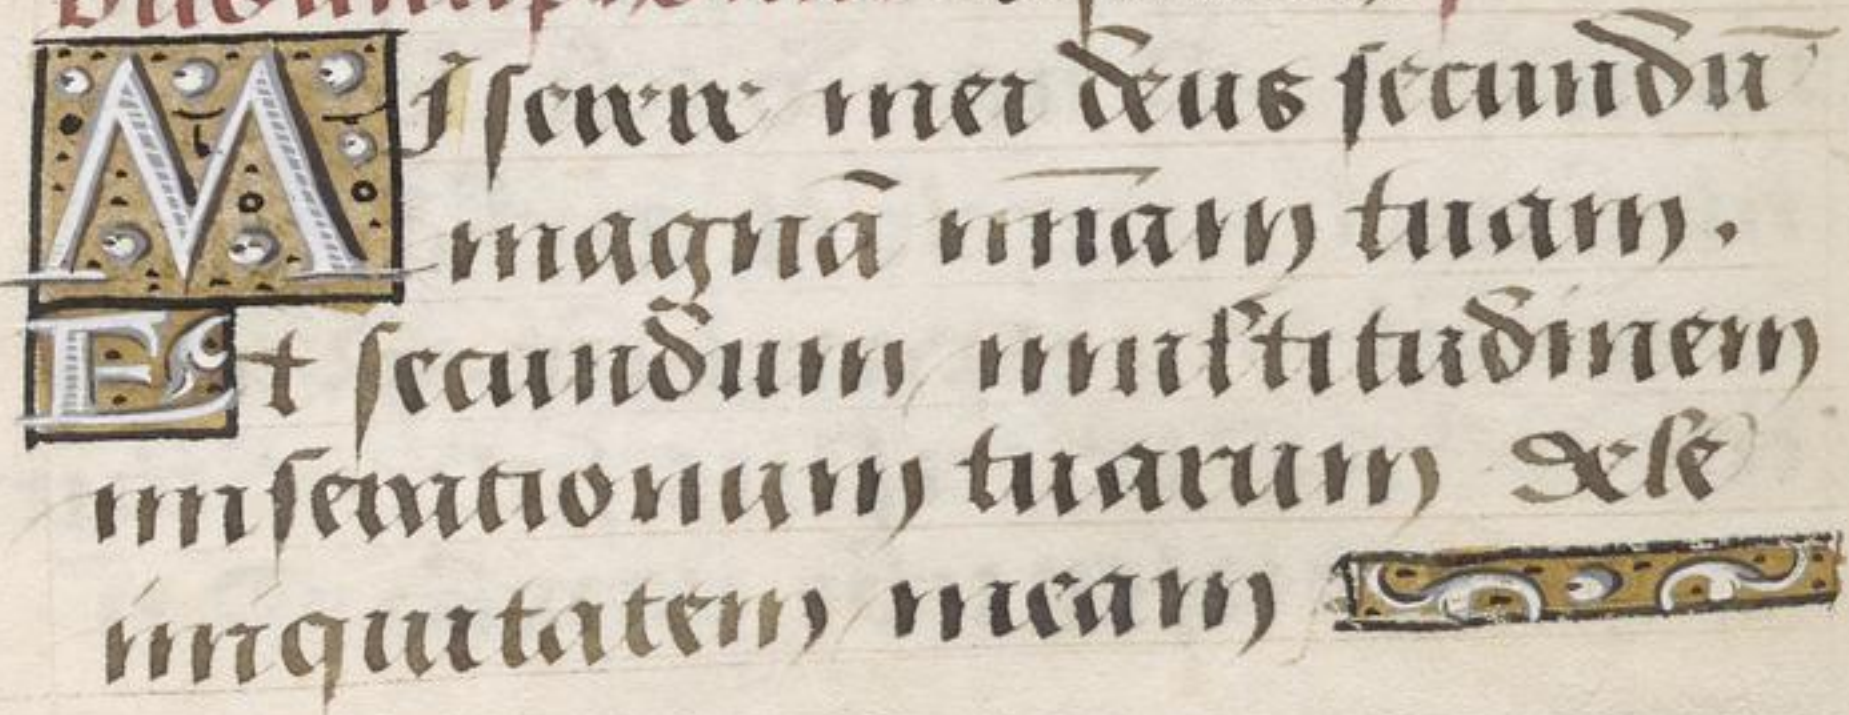 MIserere mei deus secundū
magnā m̄iam tuam.
Et secundum multitudinem
miserationum tuarum dele
iniquitatem meam